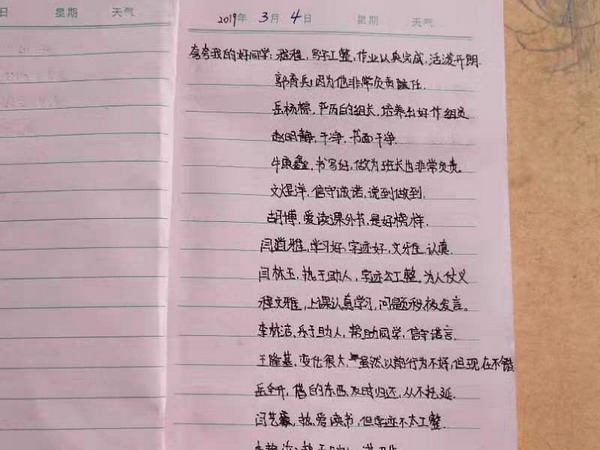 日 星期 天气
2019年3月4日 星期 天气
夸夸我的好同学: 雅雅, 写字工整, 作业认真完成, 活泼开朗
郭育兵, 因为他非常负责任.
岳杨棕, 严厉的组长, 培养出好作组员
赵明静, 干净, 书面干净.
牛康鑫, 书写好, 做为班长也非常负责.
文煜洋, 信守诚诺, 说到做到.
胡博, 爱读课外书, 是好榜样.
闫道雅, 学习好, 字迹好, 文明, 认真.
闫林玉, 执于助人, 字迹公工整. 为人仗义
程文雅, 上课认真学习, 问题积极发言.
李梦洁, 乐于助人, 帮助同学, 信守诺言.
王隆基, 变化很大, 虽然以前行为不好, 但现在不错
岳开, 借的东西, 及时归还, 从不托延.
闫艺馨, 热爱读书, 但字迹不太工整.